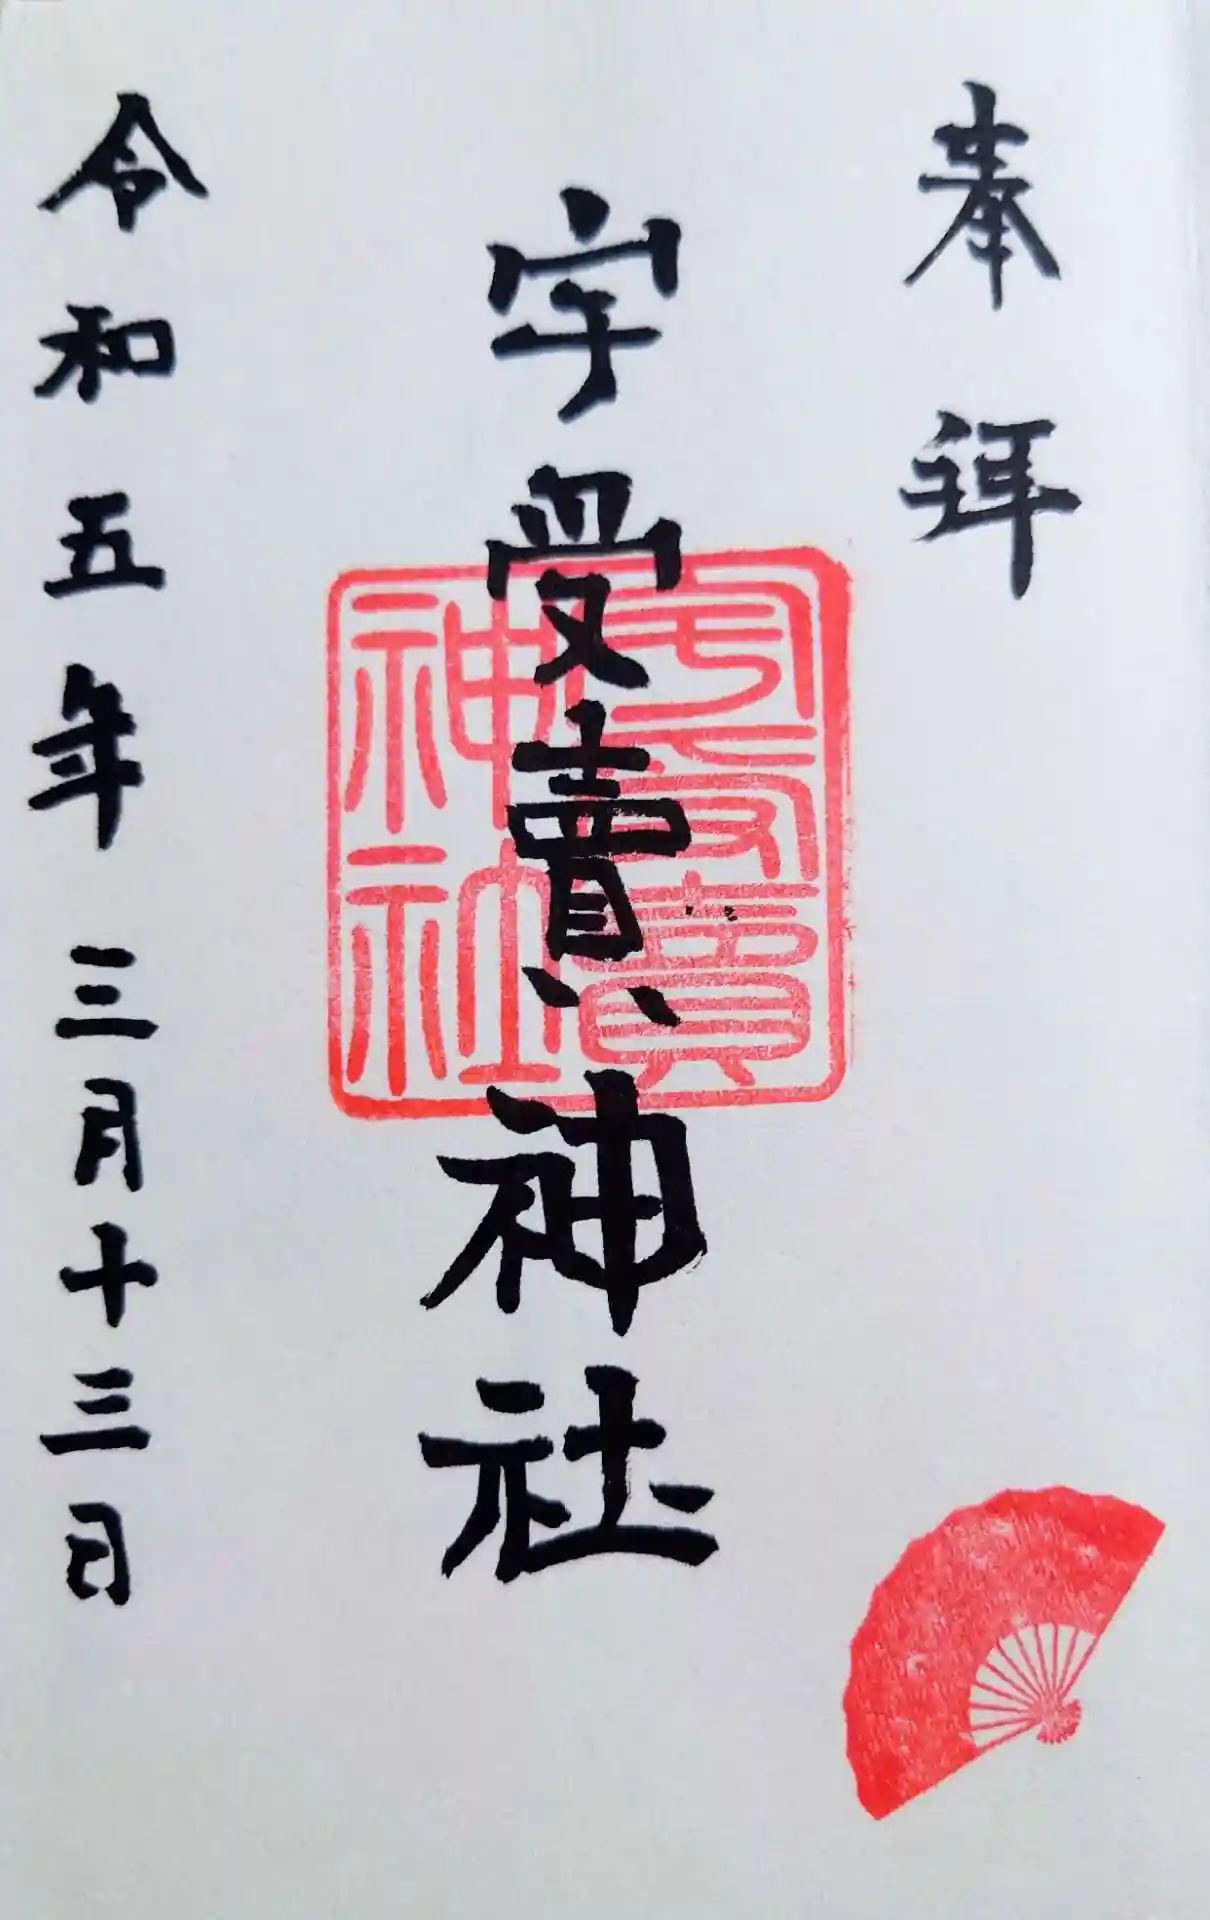 奉拝
宇受賣神社
宇受賣
神社
令和五年三月十三日